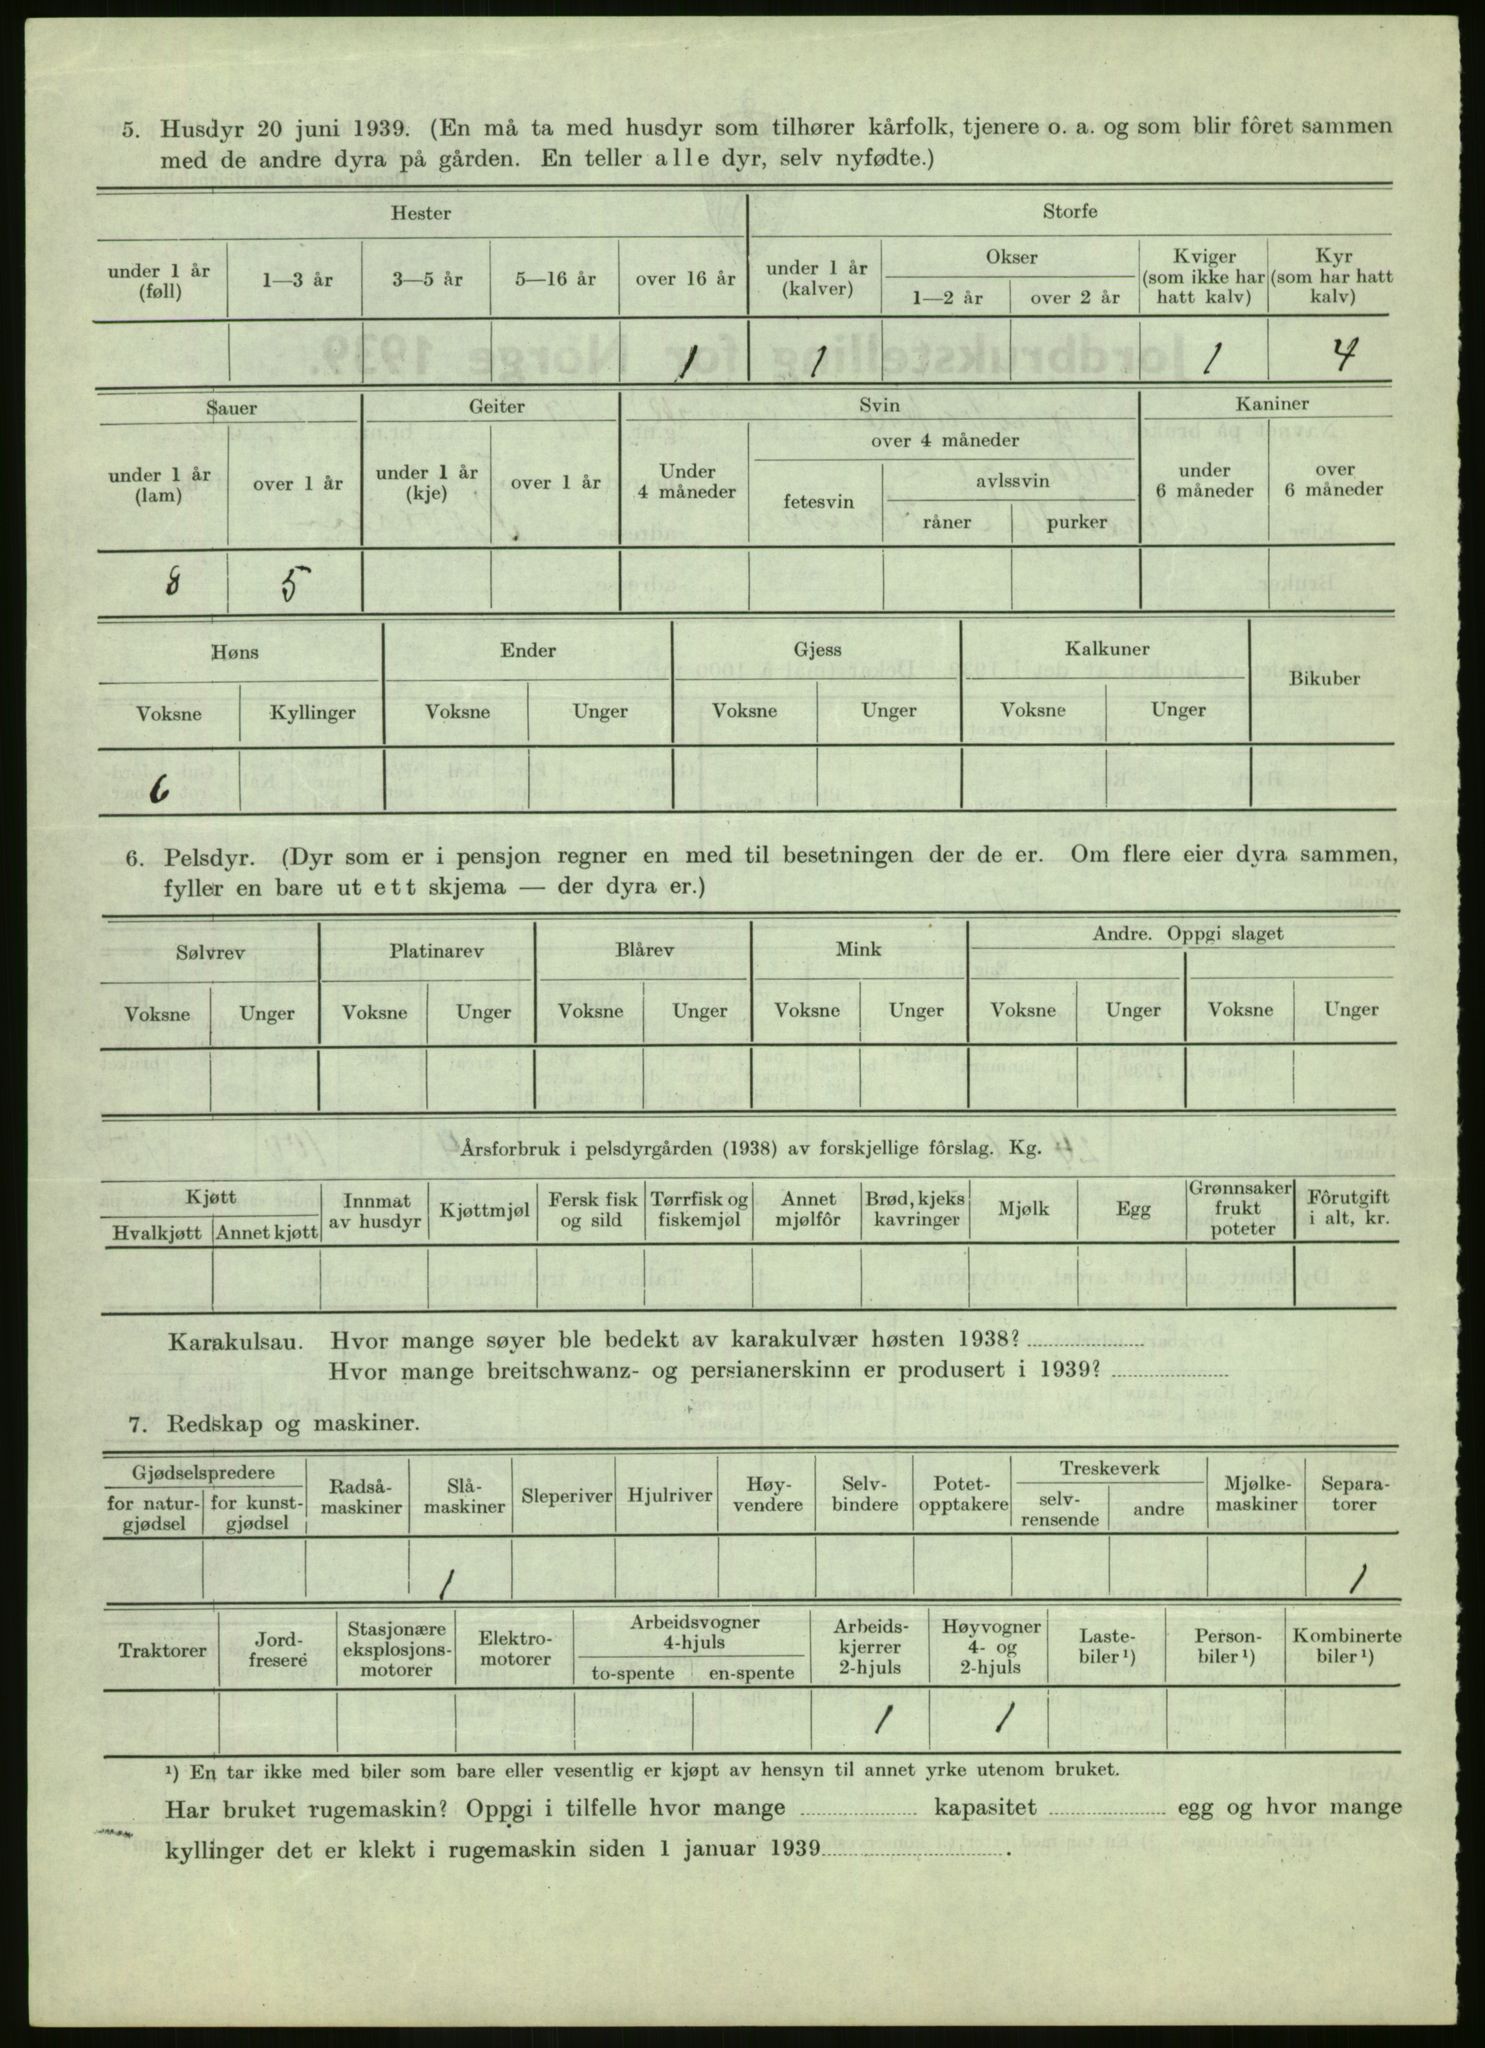 5. Husdyr 20 juni 1939. (En må ta med husdyr som tilhører kårfolk, tjenere o. a. og som blir fôret sammen
med de andre dyra på gården. En teller alle dyr, selv nyfødte.)
Hester Storfe
under 1 år (føll) 1—3 år 3—5 år 5—16 år over 16 år under 1 år (kalver) Okser 1—2 år over 2 år Kviger (som ikke har hatt kalv) Kyr (som har hatt kalv)
1 1 1 4
Sauer Geiter Svin Kaniner
under 1 år (lam) over 1 år under 1 år (kje) over 1 år Under 4 måneder over 4 måneder fetesvin avlssvin råner purker under 6 måneder over 6 måneder
8 5
Høns Ender Gjess Kalkuner Bikuber
Voksne Kyllinger Voksne Unger Voksne Unger Voksne Unger
6
6. Pelsdyr. (Dyr som er i pensjon regner en med til besetningen der de er. Om flere eier dyra sammen,
fyller en bare ut ett skjema — der dyra er.)
Sølvrev Platinarev Blårev Mink Andre. Oppgi slaget
Voksne Unger Voksne Unger Voksne Unger Voksne Unger Voksne Unger Voksne Unger
Årsforbruk i pelsdyrgården (1938) av forskjellige fôrslag. Kg.
Kjøtt Hvalkjøtt Annet kjøtt Innmat av husdyr Kjøttmjøl Fersk fisk og sild Tørrfisk og fiskemjøl Annet mjølfôr Brød, kjeks kavringer Mjølk Egg Grønnsaker frukt poteter Fôrutgift i alt, kr.
Karakulsau. Hvor mange søyer ble bedekt av karakulvær høsten 1938?
Hvor mange breitschwanz- og persianerskinn er produsert i 1939?
7. Redskap og maskiner.
Gjødselspredere for natur-gjødsel for kunst-gjødsel Radså-maskiner Slå-maskiner Sleperiver Hjulriver Høy-vendere Selv-bindere Potet-opptakere Treskeverk selv-rensende andre Mjølke-maskiner Separa-torer
1 1
Traktorer Jord-fresere Stasjonære eksplosjons-motorer Elektro-motorer Arbeidsvogner 4-hjuls to-spente en-spente Arbeids-kjerrer 2-hjuls Høyvogner 4- og 2-hjuls Laste-biler ¹) Person-biler ¹) Kombinerte biler ¹)
1 1
¹) En tar ikke med biler som bare eller vesentlig er kjøpt av hensyn til annet yrke utenom bruket.
Har bruket rugemaskin? Oppgi i tilfelle hvor mange kapasitet egg og hvor mange
kyllinger det er klekt i rugemaskin siden 1 januar 1939 .